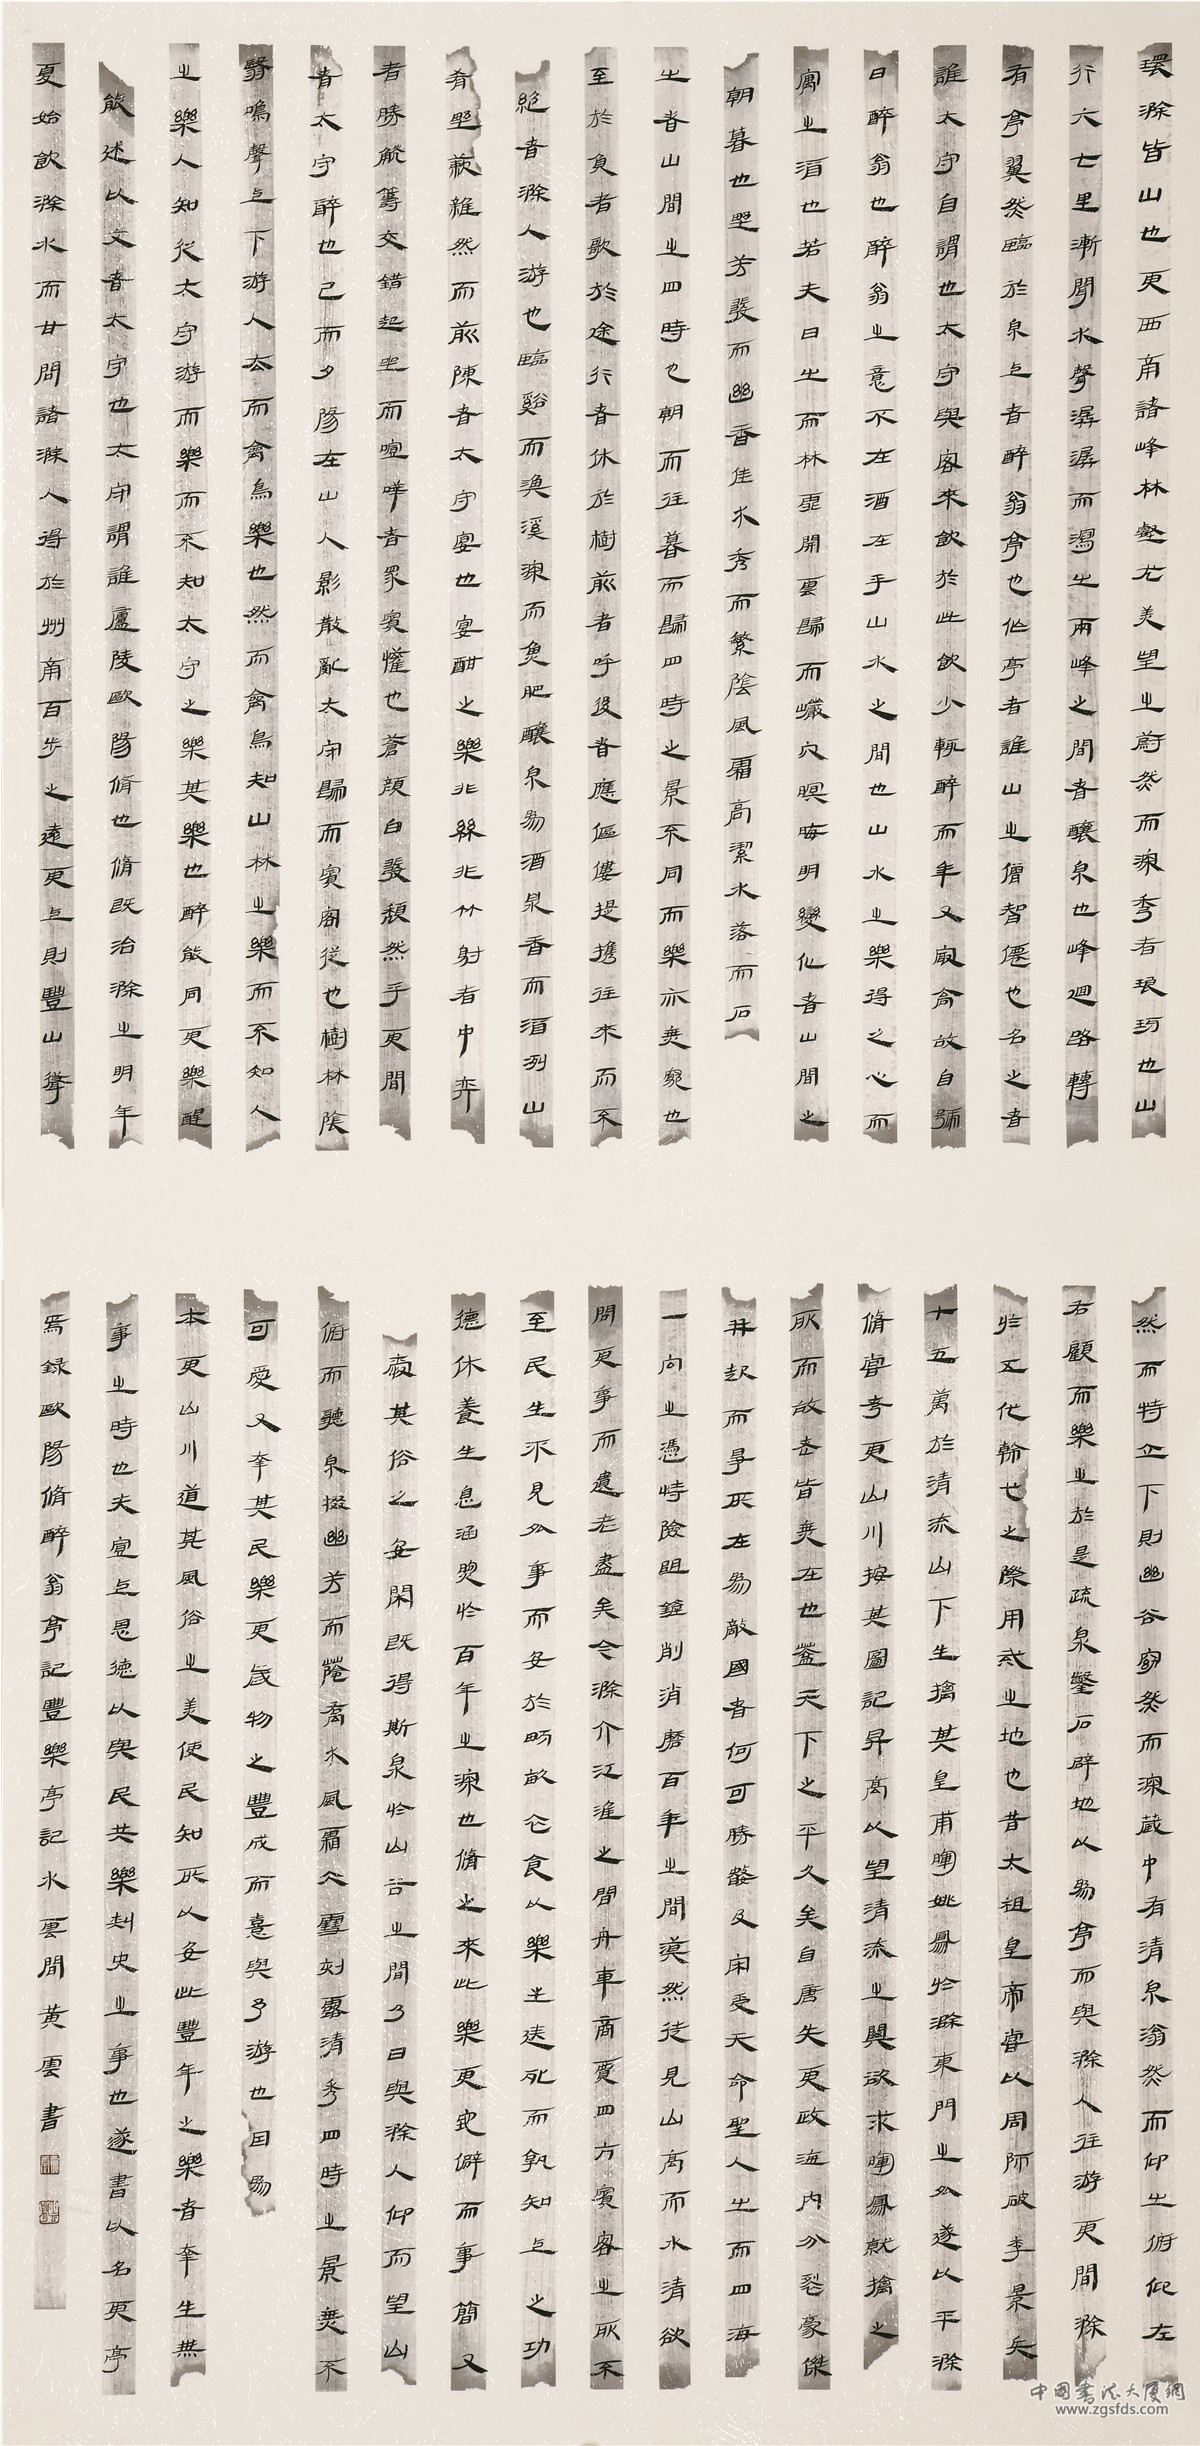 環滁皆山也其西南諸峰林壑尤美望之蔚然而深秀者琅琊也山
行六七里漸聞水聲潺潺而瀉出兩峰之間者釀泉也峰迴路轉
有亭翼然臨於泉上者醉翁亭也作亭者誰山之僧智僊也名之者
誰太守自謂也太守與客來飲於此飲少輒醉而年又最高故自號
曰醉翁也醉翁之意不在酒在乎山水之間也山水之樂得之心而
寓之酒也若夫日出而林霏開雲歸而巖穴暝晦明變化者山間之
朝暮也野芳發而幽香佳木秀而繁陰風霜高潔水落而石
出者山間之四時也朝而往暮而歸四時之景不同而樂亦無窮也
至於負者歌於途行者休於樹前者呼後者應傴僂提攜往來而不
絕者滁人游也臨谿而漁溪深而魚肥釀泉為酒泉香而酒洌山
肴野蔌雜然而前陳者太守宴也宴酣之樂非絲非竹射者中弈
者勝觥籌交錯起坐而喧嘩者眾賓懽也蒼顏白發頹然乎其間
者太守醉也已而夕陽在山人影散亂太守歸而賓客從也樹林陰
翳鳴聲上下游人去而禽鳥樂也然而禽鳥知山林之樂而不知人
之樂人知從太守游而樂而不知太守之樂其樂也醉能同其樂醒
能述以文者太守也太守謂誰廬陵歐陽脩也脩既治滁之明年
夏始飲滁水而甘問諸滁人得於州南百步之遠其上則豐山聳
然而特立下則幽谷窈然而深藏中有清泉滃然而仰出俯仰左
右顧而樂之於是疏泉鑿石辟地以為亭而與滁人往游其間滁
於五代幹戈之際用武之地也昔太祖皇帝嘗以周師破李景兵
十五萬於清流山下生擒其皇甫暉姚鳳於滁東門之外遂以平滁
脩嘗考其山川按其圖記昇高以望清流之關欲求暉鳳就擒之
所而故老皆無在也蓋天下之平久矣自唐失其政海內分裂豪傑
並起而爭所在為敵國者何可勝數及宋受天命聖人出而四海
一向之憑恃險阻鏟削消磨百年之間漠然徒見山高而水清欲
問其事而遺老盡矣今滁介江淮之間舟車商賈四方賓客之所不
至民生不見外事而安於畎畝衣食以樂生送死而孰知上之功
德休養生息涵煦於百年之深也脩之來此樂其地僻而事簡又
愛其俗之安閑既得斯泉於山谷之間乃日與滁人仰而望山
俯而聽泉掇幽芳而蔭喬木風霜冰雪刻露清秀四時之景無不
可愛又幸其民樂其歲物之豐成而喜與予游也因為
本其山川道其風俗之美使民知所以安此豐年之樂者幸生無
事之時也夫宣上恩德以與民共樂刺史之事也遂書以名其亭
焉錄歐陽脩醉翁亭記豐樂亭記水雲間黃雲書
中国书法大厦网
www.zgsfds.com